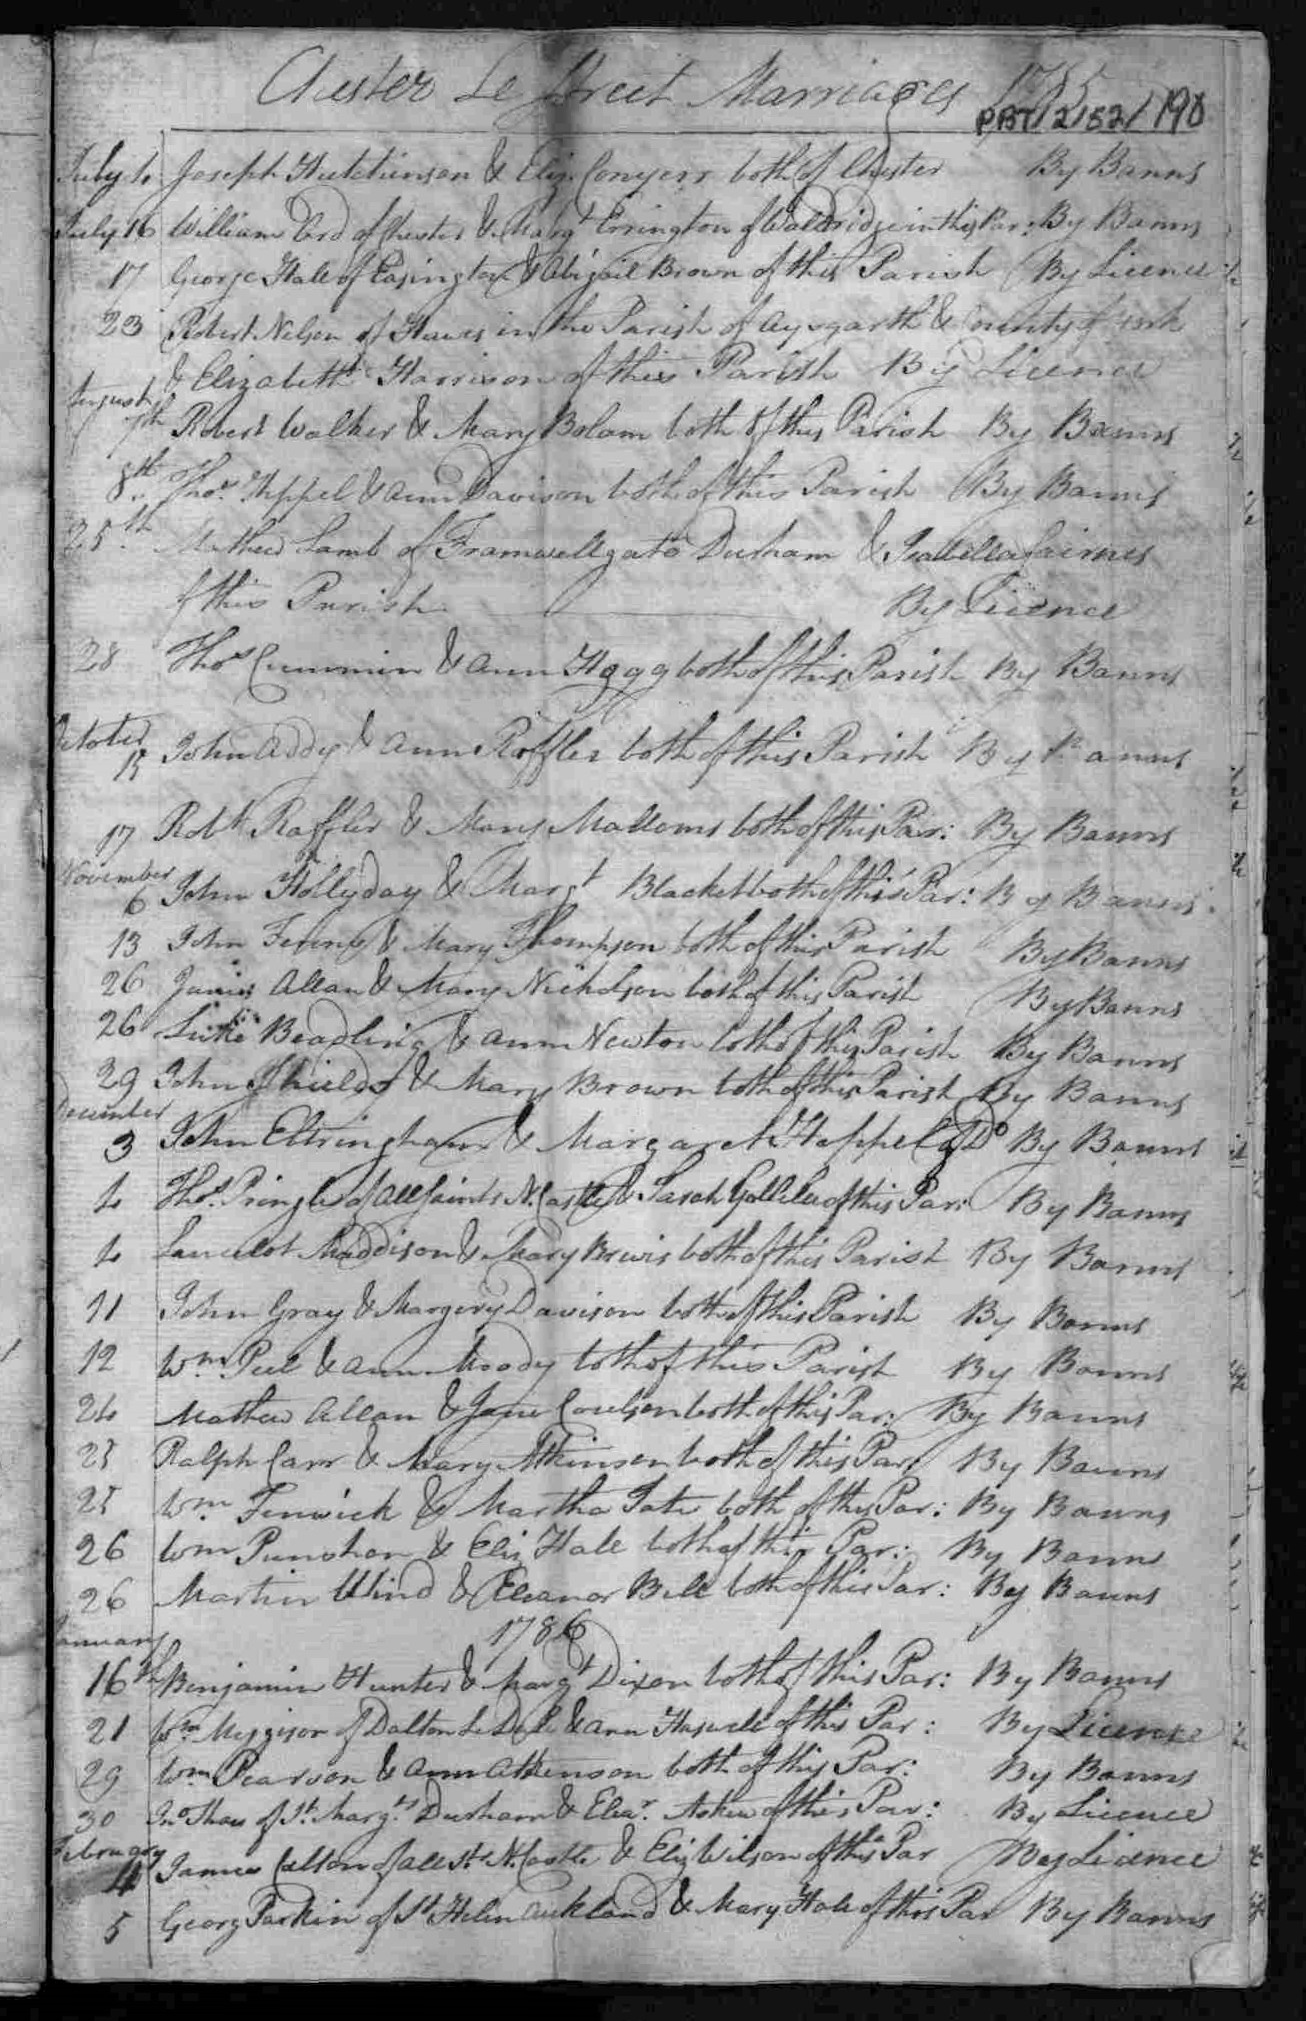 Chester Le Street Marriages 1785
PBT/2/52/190
July 10 Joseph Hutchinson & Eliz. Conyers both of Chester By Banns
July 16 William Ord of Chester & Margt Errington of Waldridge in this Par: By Banns
17 George Hall of Easington & Abigail Brown of this Parish By Licence
23 Robert Nelson of Hawes in the Parish of Aysgarth & County of York
& Elizabeth Harrison of this Parish By Licence
August
7th Robert Walker & Mary Bolam both of this Parish By Banns
8th Thos. Heppel & Ann Davison both of this Parish By Banns
25th Mathew Lamb of Framwellgate Durham & Isabella Cairnes
of this Parish By Licence
28 Thos Cummin & Ann Hogg both of this Parish By Banns
October
15 John Addy & Ann Raffler both of this Parish By Banns
17 Robt Raffler & Mary Malloms both of this Par: By Banns
November
6 John Hollyday & Margt Blacket both of this Par: By Banns
13 John Fenny & Mary Thompson both of this Parish By Banns
26 James Allan & Mary Nicholson both of this Parish By Banns
26 Luke Beadling & Ann Newton both of this Parish By Banns
29 John Shields & Mary Brown both of this Parish By Banns
December
3 John Eltringham & Margaret Heppel of Do By Banns
4 Thos. Pringle of All Saints N.Castle & Sarah Gallilee of this Par: By Banns
4 Lancelot Maddison & Mary Brewis both of this Parish By Banns
11 John Gray & Margery Davison both of this Parish By Banns
12 Wm. Peel & Ann Moody both of this Parish By Banns
24 Mathew Allan & Jane Coulson both of this Par: By Banns
25 Ralph Carr & Mary Atkinson both of this Par: By Banns
25 Wm. Fenwick & Martha Tate both of this Par: By Banns
26 Wm Punshon & Eliz Hall both of this Par: By Banns
26 Martin Wind & Eleanor Bell both of this Par: By Banns
January 1786
16th Benjamin Hunter & Margt Dixon both of this Par: By Banns
21 Wm Meggison of Dalton Le Dale & Ann Haswell of this Par: By Licence
29 Wm Pearson & Ann Atkenson both of this Par: By Banns
30 Jno Shaw of St. Margts Durham & Elear. Askew of this Par: By Licence
February
4 James Calton of All Sts N.Castle & Eliz Wilson of this Par By Licence
5 Georg Parkin of St Helen Auckland & Mary Hall of this Par By Banns